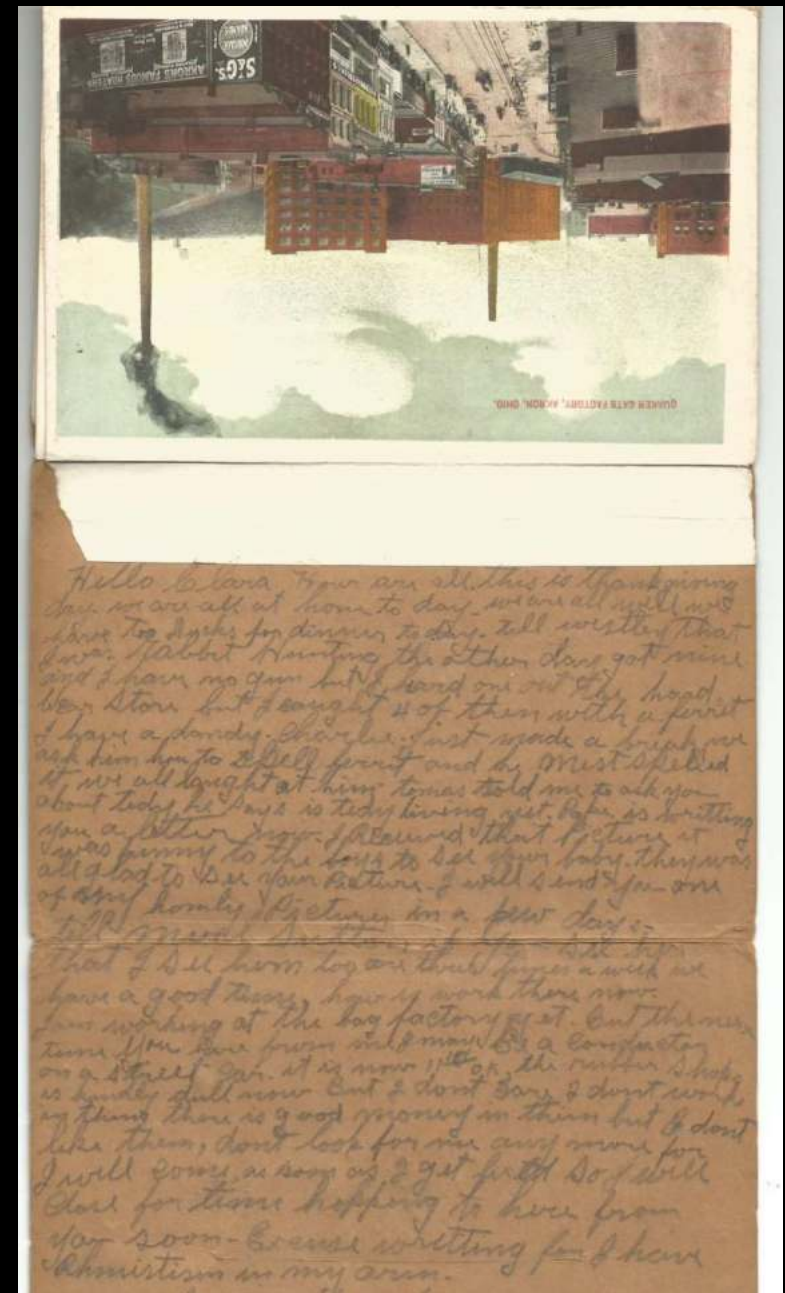 S&G's.
AKRON'S FAMOUS HEATERS
QUAKER OATS FACTORY, AKRON, OHIO.
Hello Clara How are all. this is thankgiving
day we are all at home to day. we are all well we
have too ducks for dinner today. tell westley that
I was Rabbit Hunting the other day got nine
and I have no gun but I
store but I caught 4 of them with a ferrit
I have a dandy. Charlie just made a break we
ask him how to spell ferrit and he mest spelled
it we all laught at him tomas told me to ask you
about tedy he says is tedy living yet. Pape is writting
you a letter now. I Received that Picture it
was funny to the boys to see your baby. they was
all glad to see your Picture. I will send you one
of my homly Pictures in a few days
tell
that I see hern too are three times a week we
have a good time, how is work there now.
I am working at the bag factory yet. But the nex
time you here from me I may be a Conductor
on a street Car. it is now 11 the rubber shops
is kindly dull now But I dont Care I dont work
in them there is good money in them but I dont
like them, dont look for me any more for
I will come as soon as I get So I will
Close for time hopping to here from
you soon - Excuse writting for I have
Rhmistism in my arm.